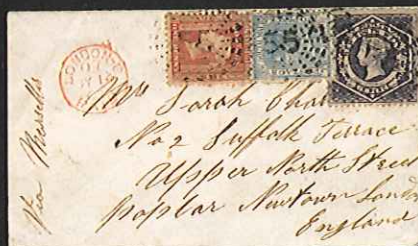 LONDON
Via Marseilles
Mrs Sarah Chat
No 2 Suffolk Terrace
Upper North Stree
Poplar Newtown London
England
55